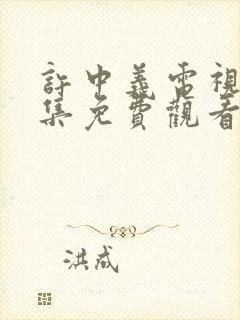 許中義電視
集免費觀看
洪成